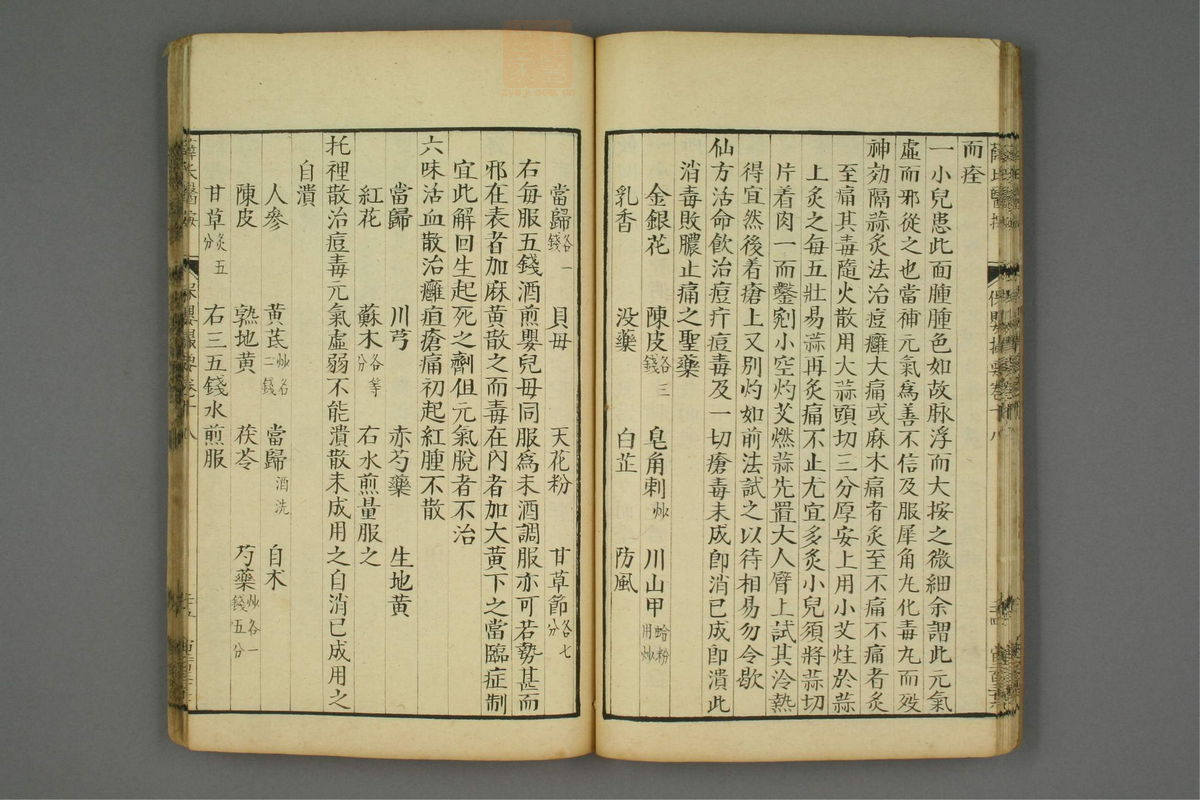 而痊
一小兒患此面腫腫色如故脉浮而大按之微細余謂此元氣
虛而邪從之也當補元氣爲善不信及服犀角丸化毒丸而歿
神効隔蒜灸法治痘癰大痛或麻木痛者灸至不痛不痛者灸
至痛其毒隨火散用大蒜頭切三分厚安上用小艾炷於蒜
上灸之每五壯易蒜再灸痛不止尤宜多灸小兒須將蒜切
片着肉一面鑿剜小空灼艾燃蒜先置大人臂上試其冷熱
得宜然後着瘡上又別灼如前法試之以待相易勿令歇
仙方活命飲治痘疔痘毒及一切瘡毒未成卽消已成卽潰此
消毒敗膿止痛之聖藥
金銀花 陳皮各三錢 皂角刺炒 川山甲蛤粉炒用
乳香 没藥 白芷 防風
當歸各一錢 貝母 天花粉 甘草節各七分
右每服五錢酒煎嬰兒母同服爲末酒調服亦可若勢甚而
邪在表者加麻黃散之而毒在內者加大黃下之當臨症制
宜此解回生起死之劑但元氣脫者不治
六味活血散治癰疽瘡痛初起紅腫不散
當歸 川芎 赤芍藥 生地黃
紅花 蘇木各等分 右水煎量服之
托裡散治痘毒元氣虛弱不能潰散未成用之自消已成用之
自潰
人參 黃芪炒各二錢 當歸酒洗 自朮
陳皮 熟地黃 茯苓 芍藥炒各一錢五分
甘草灸五分 右三五錢水煎服